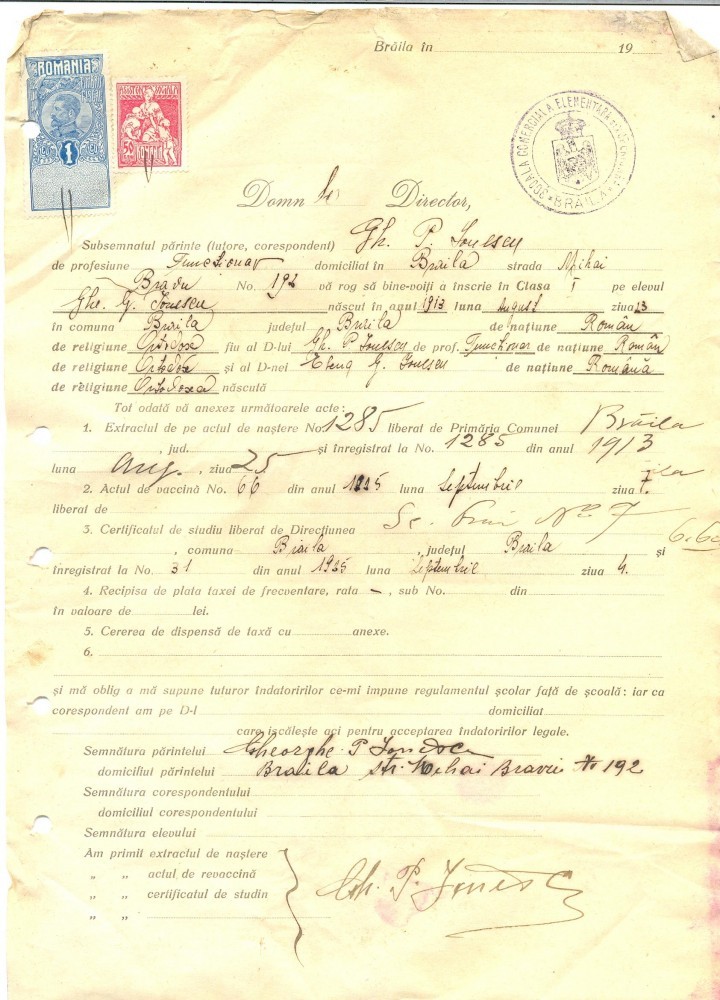 Brăila în 19
ROMANIA
TIMBRU FISCAL
1
LEU LEU
ASISTENȚA SOCIALA
50 ROMANIA
ȘCOALA COMERCIALA ELEMENTARA
BRĂILA
Domnule Director,
Subsemnatul părinte (tutore, corespondent) Gh. P. Ionescu
de profesiune Funcționar domiciliat în Brăila strada Mihai
Bravu No. 192 vă rog să bine-voiți a înscrie în Clasa I pe elevul
Ghe. G. Ionescu născut în anul 1913 luna August ziua 23
în comuna Brăila județul Brăila de națiune Român
de religiune Ortodoxă fiu al D-lui Gh. P. Ionescu de prof. Funcționar de națiune Român
de religiune Ortodox și al D-nei Elena G. Ionescu de națiune Română
de religiune Ortodoxă născută
Tot odată vă anexez următoarele acte:
1. Extractul de pe actul de naștere No. 1285 liberat de Primăria Comunei Brăila
, jud. și înregistrat la No. 1285 din anul 1913
luna Aug. , ziua 25
2. Actul de vaccină No. 66 din anul 1925 luna Septembrie ziua 7.
liberat de
3. Certificatul de studiu liberat de Direcțiunea Sc. Prim No. 7
, comuna Brăila , județul Braila și
înregistrat la No. 31 din anul 1925 luna Septembrie ziua 4.
4. Recipisa de plata taxei de frecventare, rata – , sub No. din
în valoare de lei.
5. Cererea de dispensă de taxă cu anexe.
6.
și mă oblig a mă supune tuturor îndatoririlor ce-mi impune regulamentul școlar față de școală: iar ca
corespondent am pe D-l domiciliat
care iscălește aci pentru acceptarea îndatoririlor legale.
Semnătura părintelui Gheorghe P Ionescu
domiciliul părintelui Braila str. Mihai Bravu No 192
Semnătura corespondentului
domiciliul corespondentului
Semnătura elevului
Am primit extractul de naștere
„ „ actul de revaccină
„ „ certificatul de studin
„ „
Gh. P. Ionescu